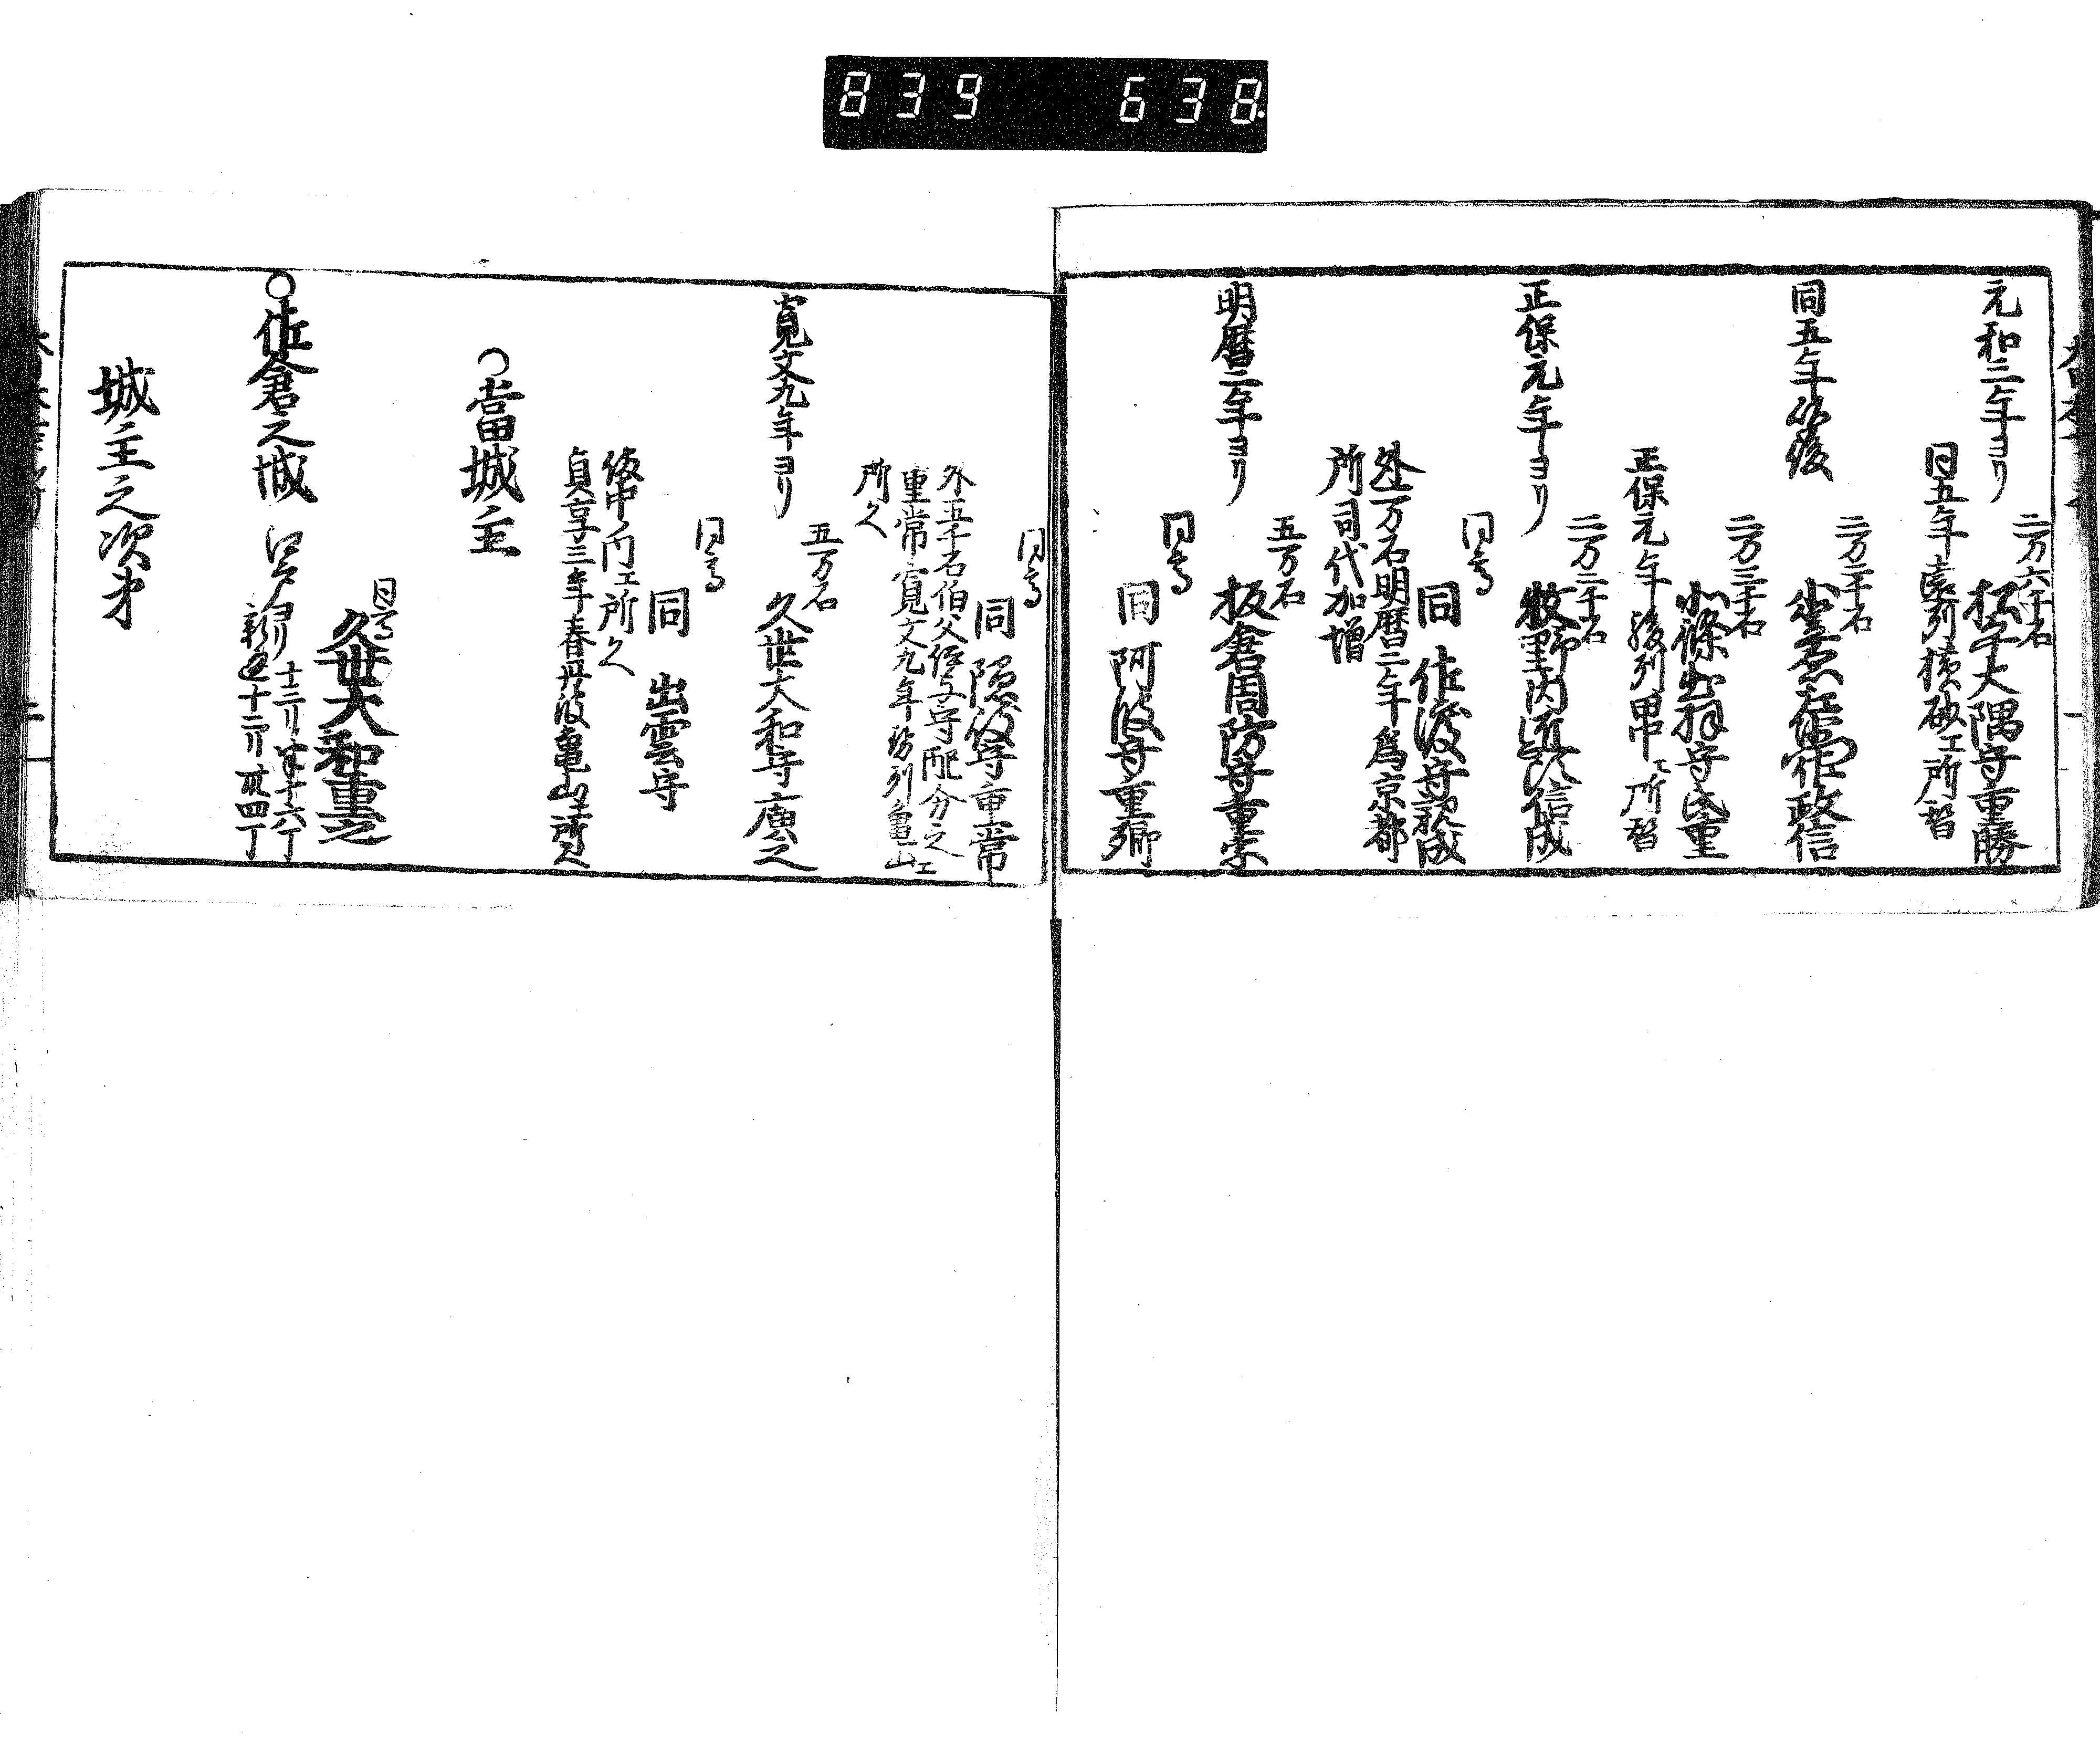 839 638
元和二年ヨリ
二万六千石
松平大隅守重勝
同五年遠列横砂エ所替
同五年以後
二万二千石
小笠原左衛門佐政信
二万三千石
北條出羽守氏重
正保元年駿列田中エ所替
正保元年ヨリ
二万二千石
牧野内匠頭信成
同高
同 佐渡守親成
外一万石明暦二年爲京都
所司代加増
明暦二年ヨリ
五万石
板倉周防守重宗
同高
同 阿波守重郷
同高
同 隠岐守重常
外五千石伯父伊与守配分之
重常寛文九年勢列亀山エ
所久
寛文九年ヨリ
五万石
久世大和守廣之
同高
同 出雲守
備中ノ内エ所久
貞享三年春丹波亀山エ所久
つ當城主
同高
久世大和重之
○佐倉之城 江戸ヨリ
十三リ半十六丁
新道十二リ廿四丁
城主之次才